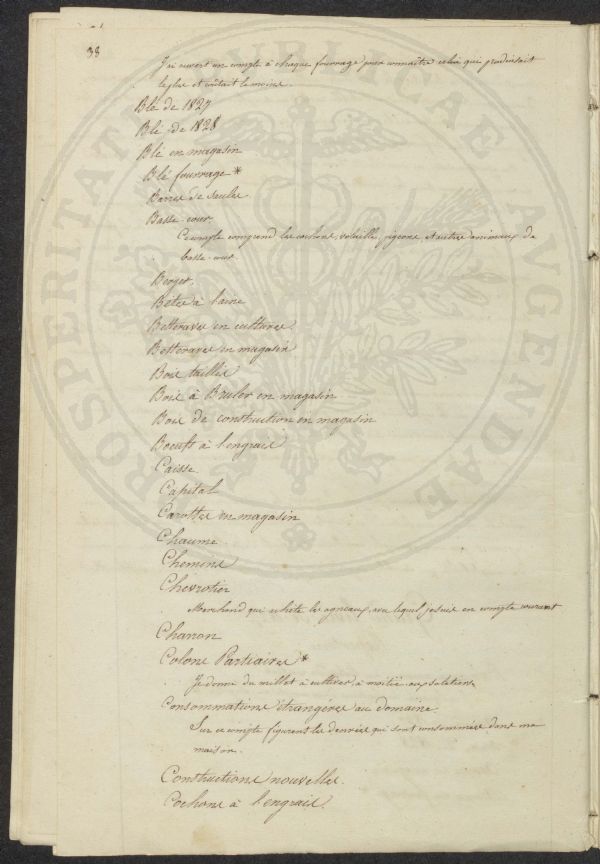 38
J'ai ouvert un compte à chaque fourrage pour connaître celui qui produisait
le plus et coûtait le moins.
Blé de 1827
Blé de 1828
Blé en magasin
Blé fourrage *
Barres de saules
Basse-cour
Ce compte comprend les cochons, volaille, pigeons, et autres animaux de
basse-cour.
Berger.
Bêtes à laine
Betteraves en cultures.
Betteraves en magasin
Bois taillis
Bois à Bruler en magasin
Bois de construction en magasin
Boeufs à l'engrais
Caisse
Capital
Carottes en magasin
Chaume
Chemins
Chevrotier
Marchand qui achète les agneaux, avec lequel je suis en compte courant
Charron
Colons Partiaires *
Je donne du millet à cultiver à moitié aux solatiers
Consommations étrangères au domaine.
Sur ce compte figurent les denrées qui sont consommées dans ma
maison.
Constructions nouvelles.
Cochons à l'engrais.
PROSPERITATI PVBLICAE AVGENDAE